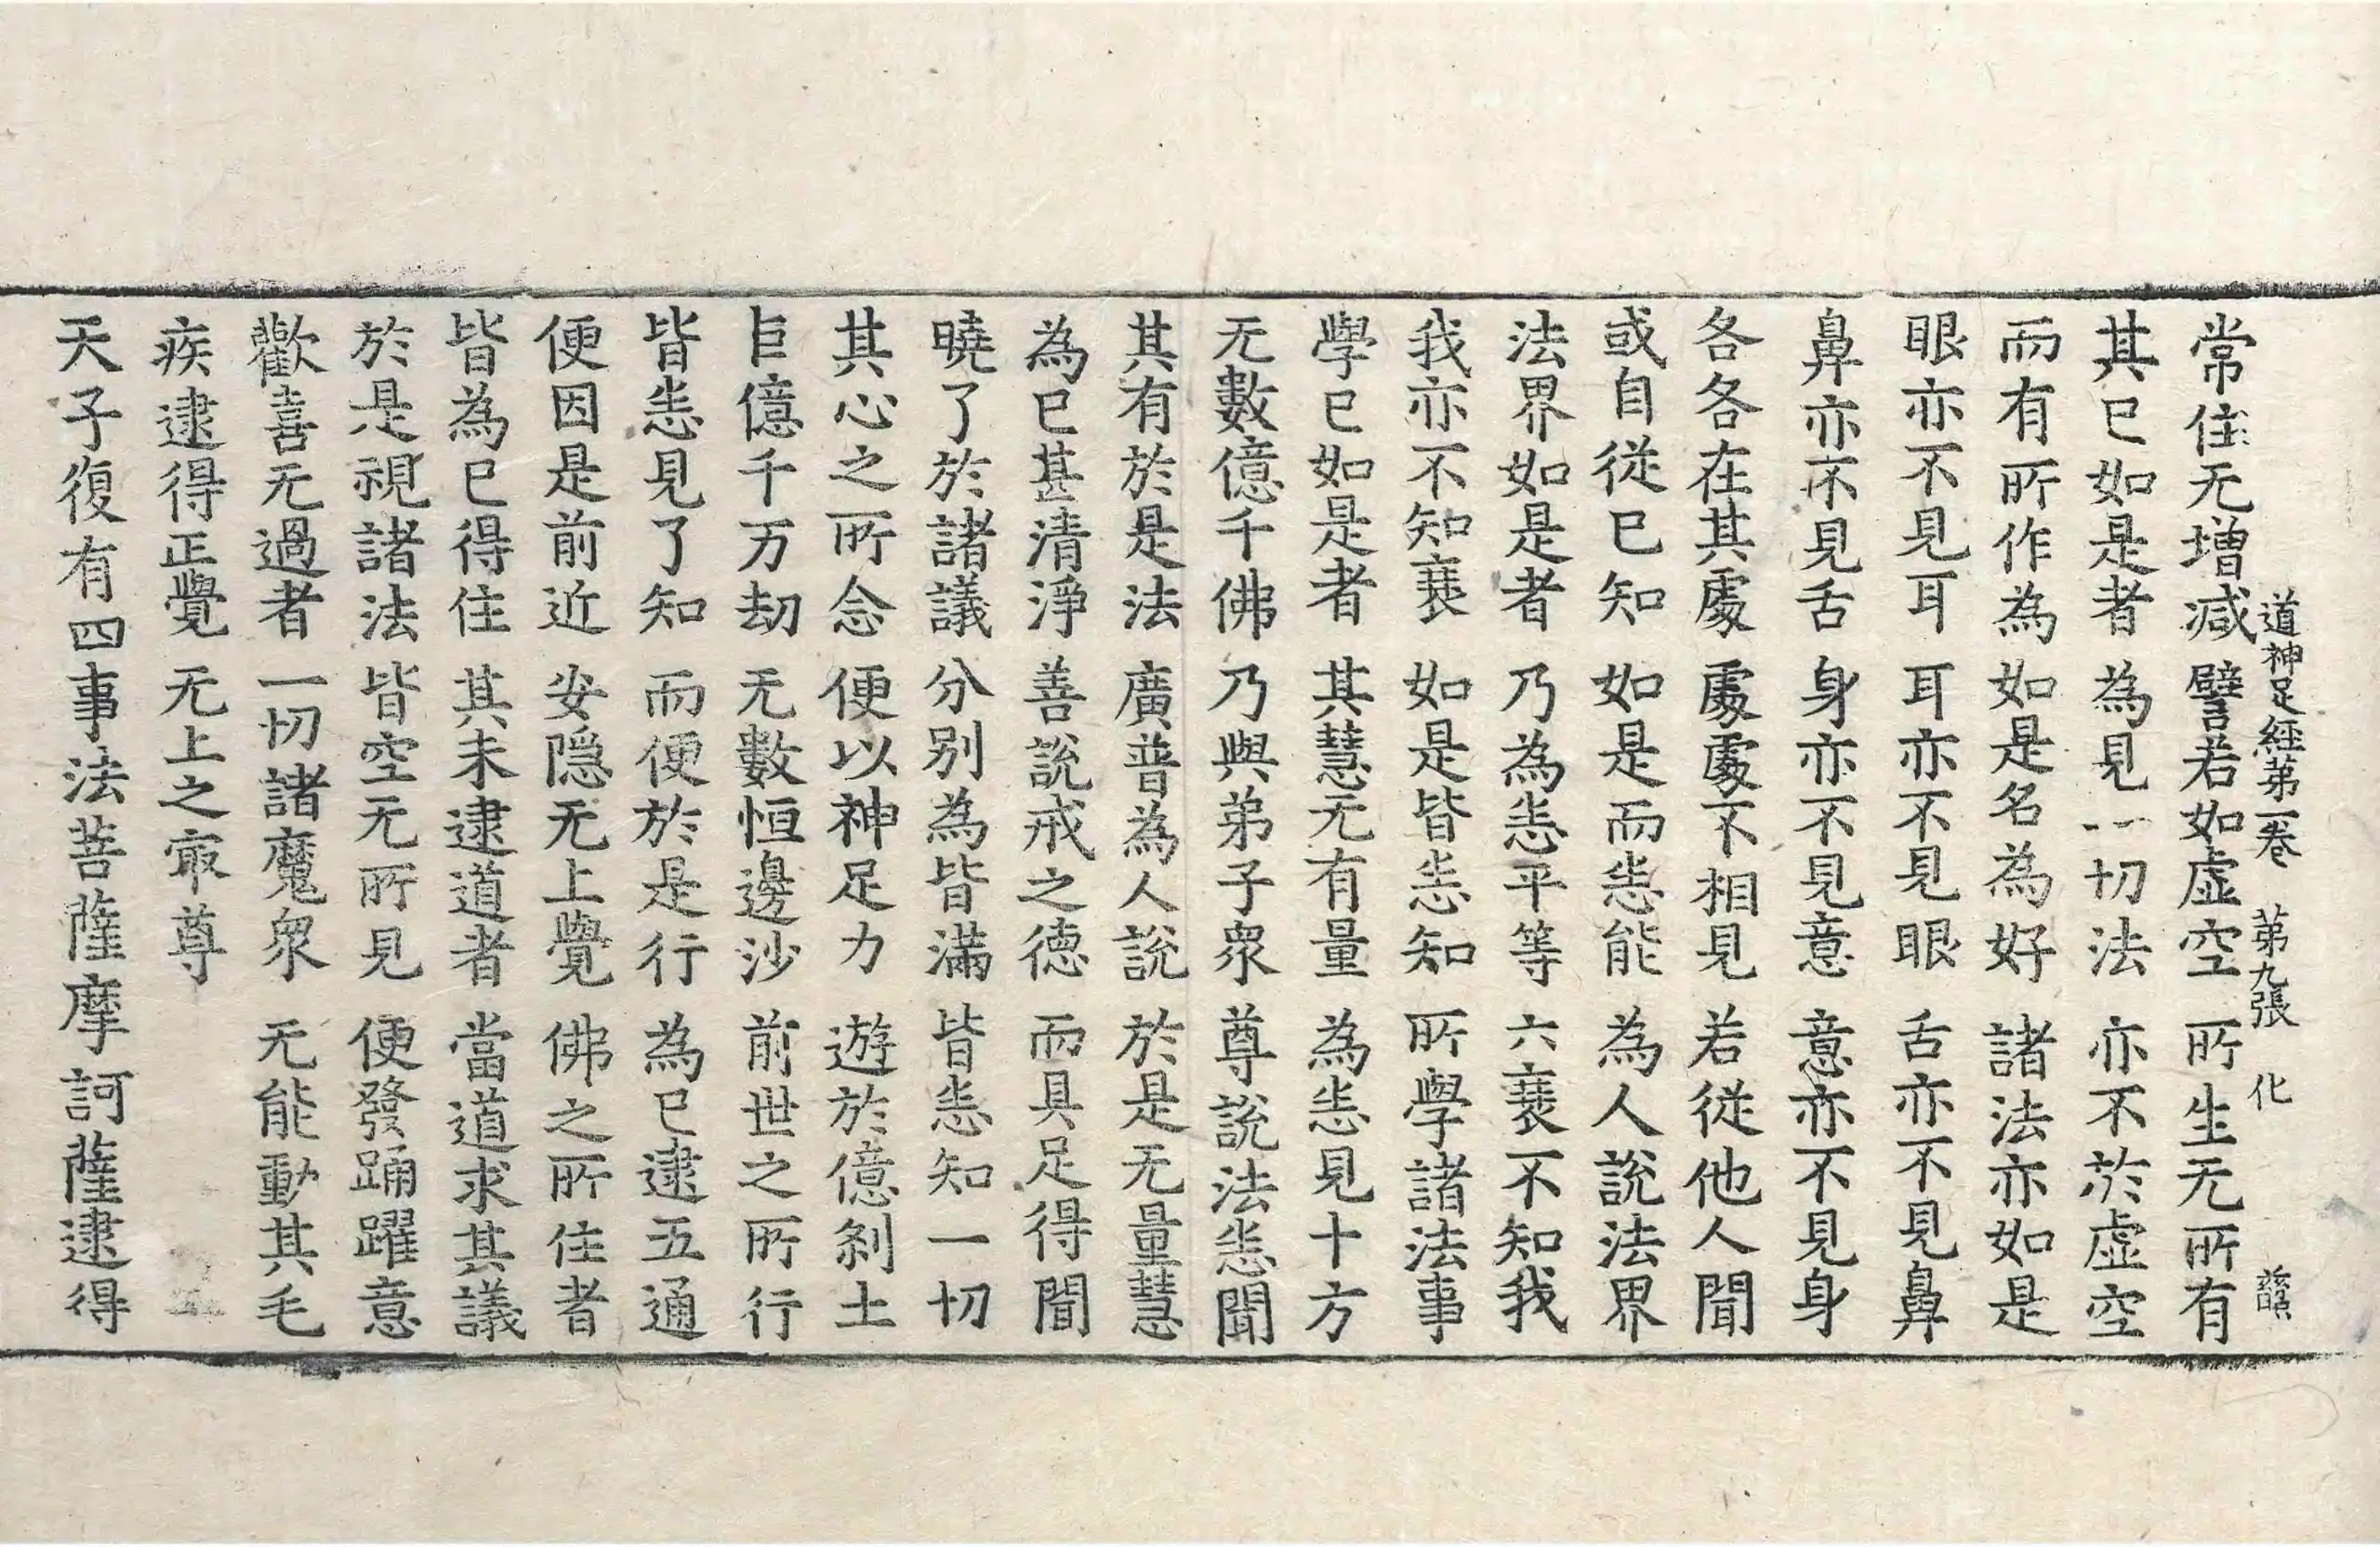 道神足經第一卷 第九張 化
常住无增減 譬若如虛空 所生无所有
其已如是者 為見一切法 亦不於虛空
而有所作為 如是名為好 諸法亦如是
眼亦不見耳 耳亦不見眼 舌亦不見鼻
鼻亦不見舌 身亦不見意 意亦不見身
各各在其處 處處不相見 若從他人聞
或自從已知 如是而悉能 為人說法界
法界如是者 乃為悉平等 六衰不知我
我亦不知衰 如是皆悉知 所學諸法事
學已如是者 其慧无有量 為悉見十方
无數億千佛 乃與弟子眾 尊說法悉聞
其有於是法 廣普為人說 於是无量慧
為已甚清淨 善說戒之德 而具足得聞
曉了於諸議 分別為皆滿 皆悉知一切
其心之所念 便以神足力 遊於億剎土
巨億千万劫 无數恒邊沙 前世之所行
皆悉見了知 而便於是行 為已逮五通
便因是前近 安隱无上覺 佛之所住者
皆為已得住 其未逮道者 當道求其議
於是視諸法 皆空无所見 便發踊躍意
歡喜无過者 一切諸魔眾 无能動其毛
疾逮得正覺 无上之㝡尊
天子復有四事法菩薩摩訶薩逮得